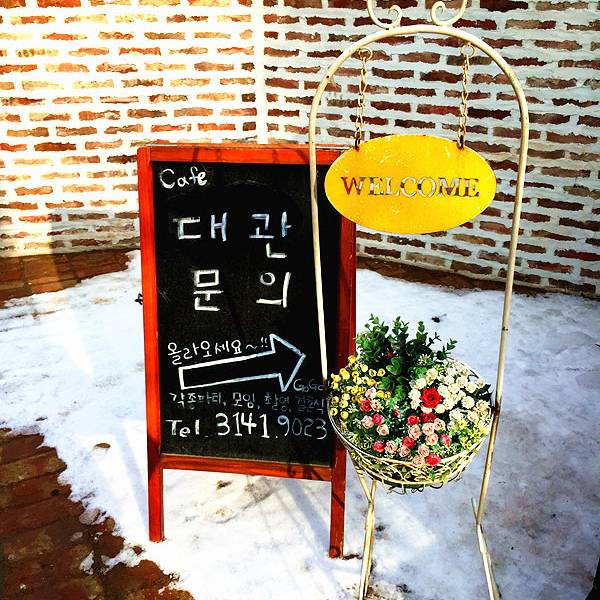 Cafe
WELCOME
대관
문의
올라오세요~!!
GoGo
각종파티, 모임, 촬영, 결혼식
Tel. 3141.9023